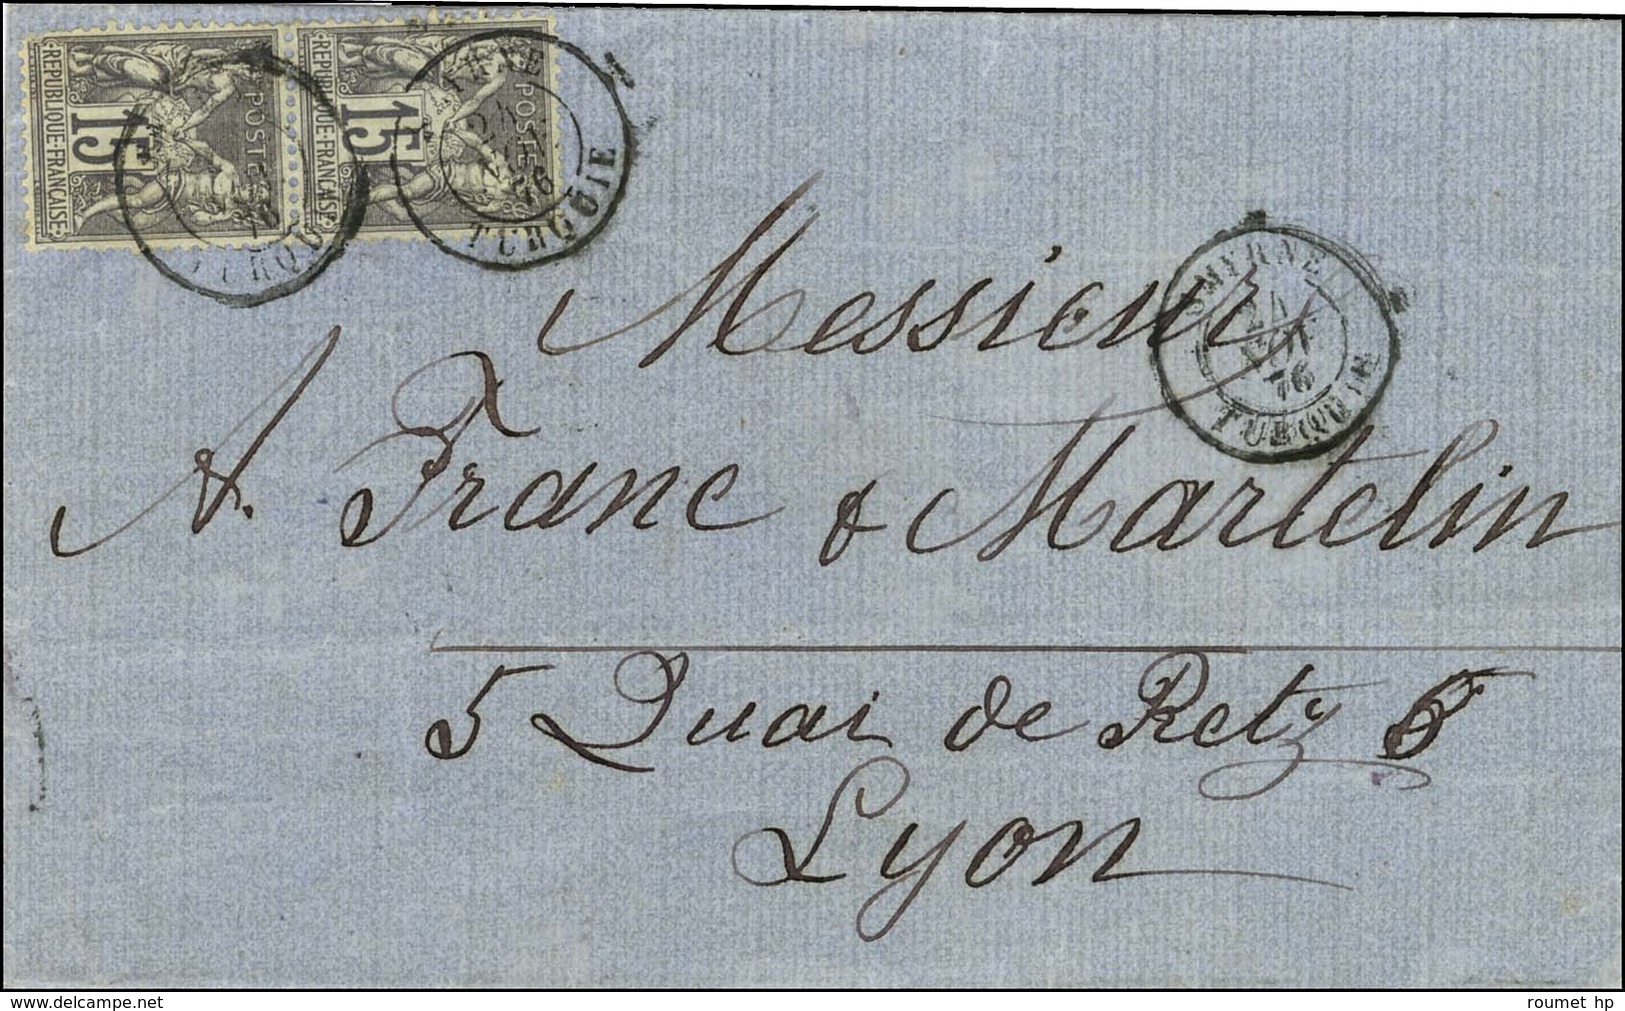 REPUBLIQUE·FRANÇAISE
15
POSTE
REPUBLIQUE·FRANÇAISE
15
POSTE
76
TURQUIE
SMYRNE
76
TURQUIE
Messieurs
A. Franc & Martelin
5 Quai de Retz 5
Lyon
www.delcampe.net
roumet hp